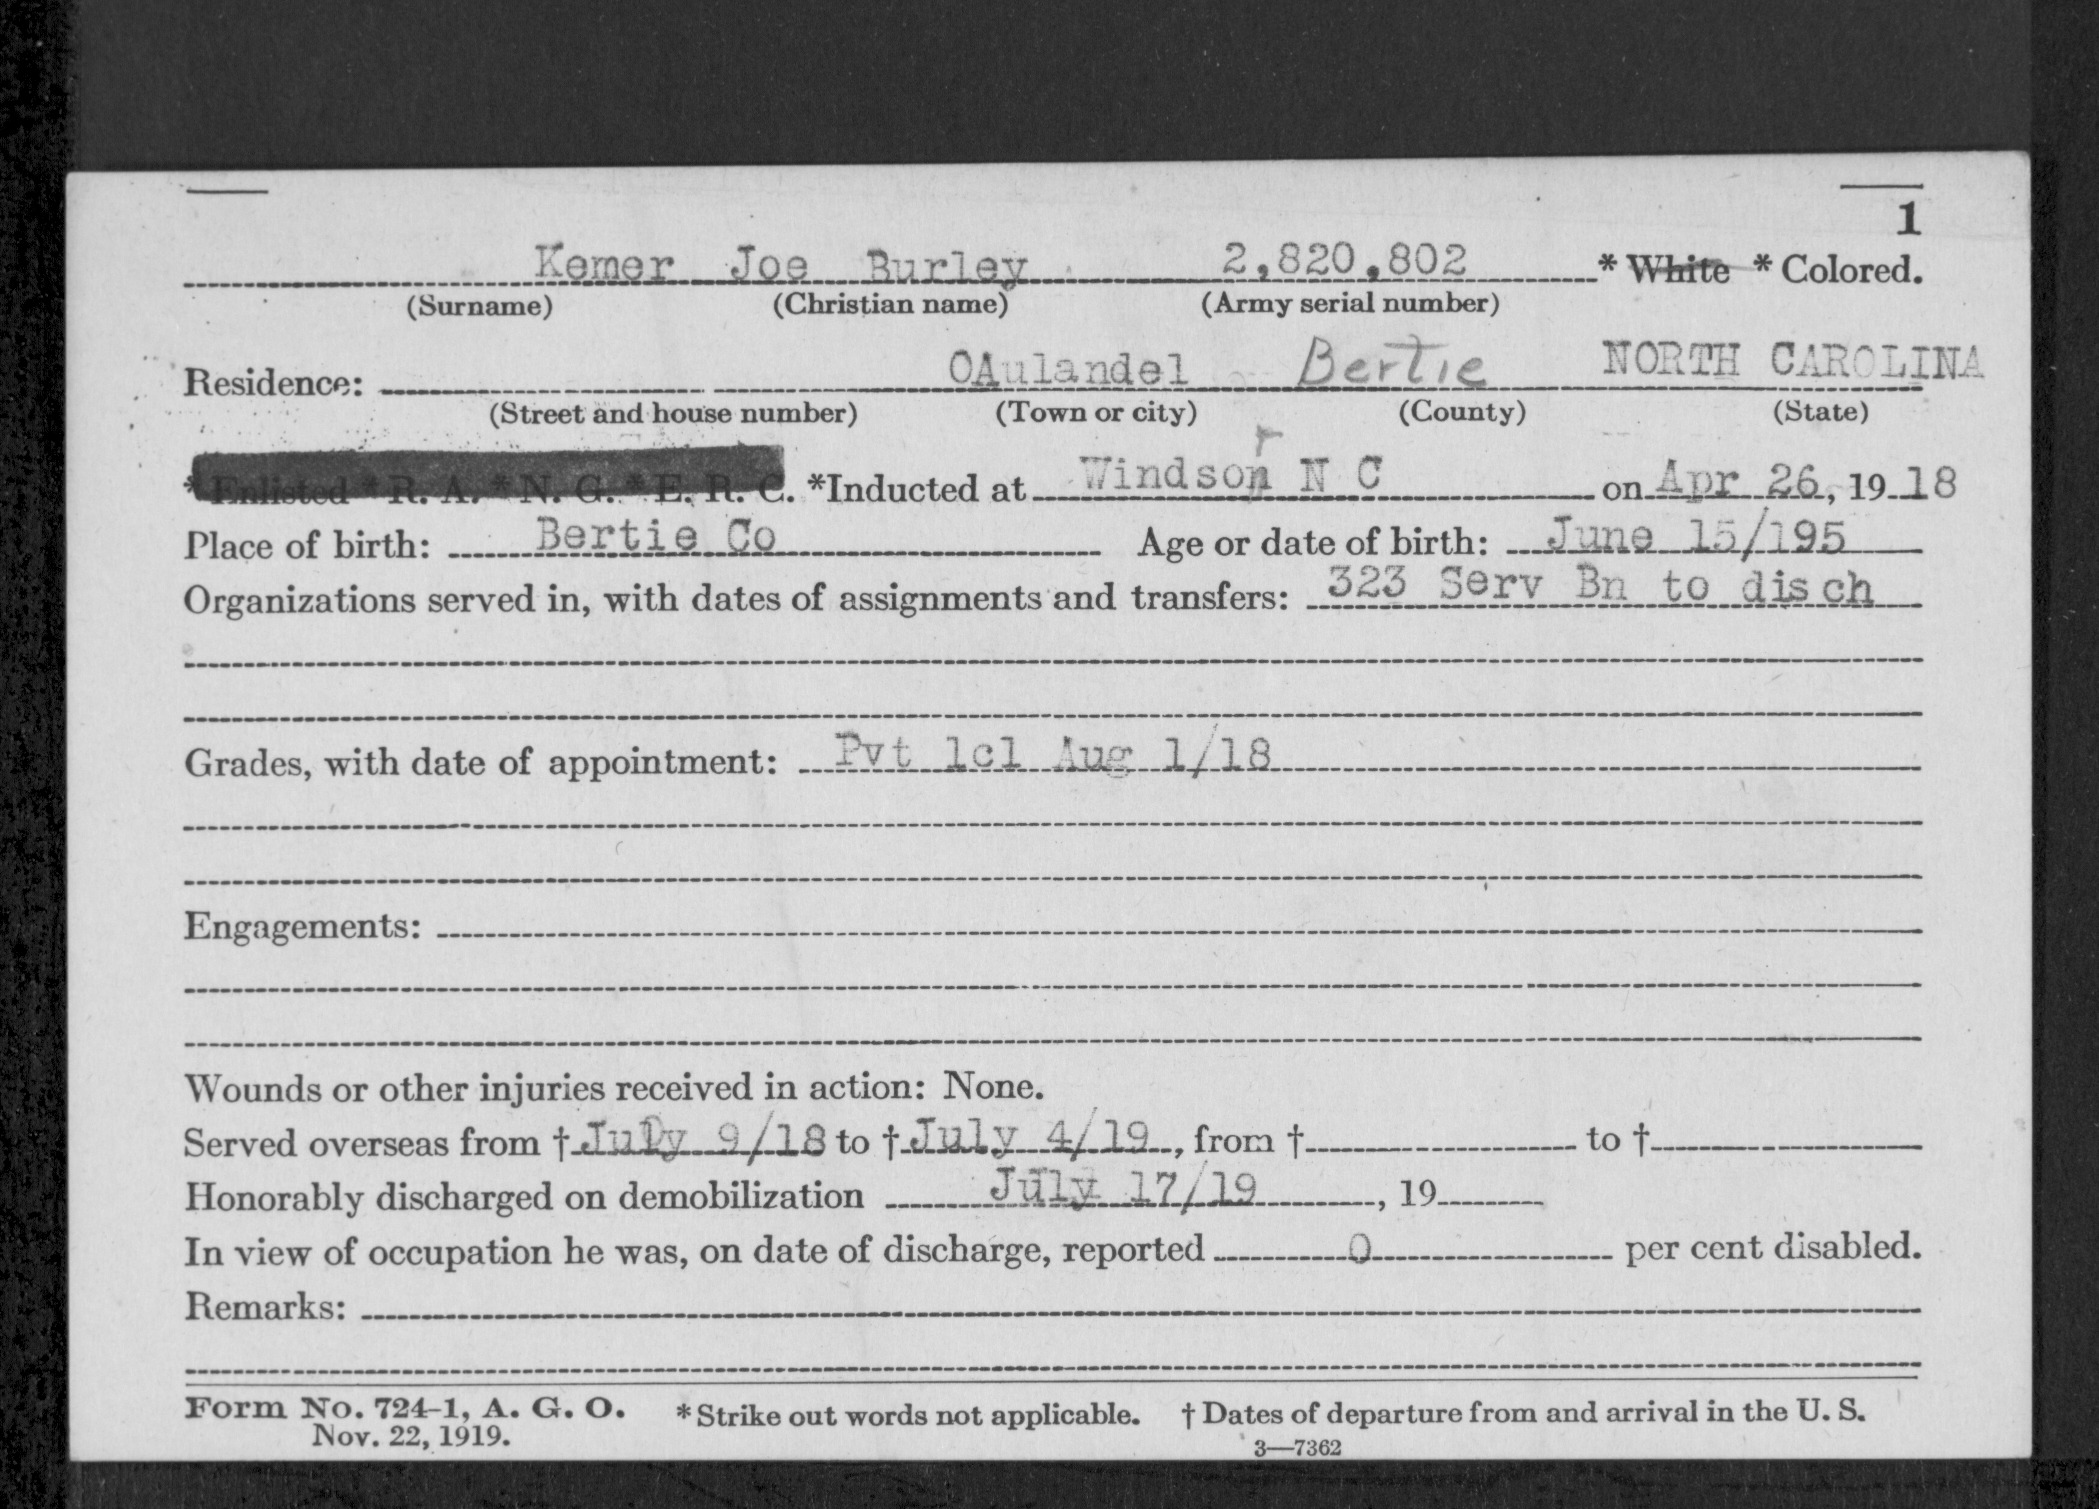 1
Kemer Joe Burley 2,820,802 * White * Colored.
(Surname) (Christian name) (Army serial number)
Residence: OAulandel Bertie NORTH CAROLINA
(Street and house number) (Town or city) (County) (State)
* Enlisted * R. A. * N. G. * E. R. C. *Inducted at Windsor N C on Apr 26, 19 18
Place of birth: Bertie Co Age or date of birth: June 15/195
Organizations served in, with dates of assignments and transfers: 323 Serv Bn to disch
Grades, with date of appointment: Pvt 1cl Aug 1/18
Engagements:
Wounds or other injuries received in action: None.
Served overseas from † July 9/18 to † July 4/19, from † to †
Honorably discharged on demobilization July 17/19, 19
In view of occupation he was, on date of discharge, reported 0 per cent disabled.
Remarks:
Form No. 724-1, A. G. O. * Strike out words not applicable. † Dates of departure from and arrival in the U. S.
Nov. 22, 1919. 3—7362